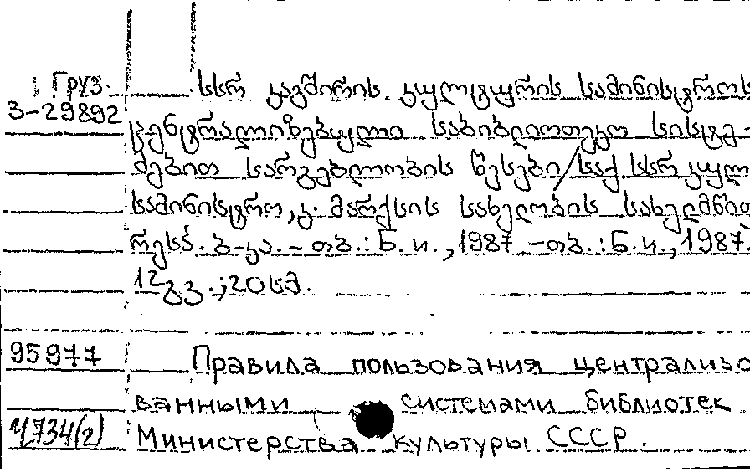 Груз. სსრ კავშირის კულტურის სამინისტროს
3-29892 ცენტრალიზებული საბიბლიოთეკო სისტე-
მებით სარგებლობის წესები/საქ. სსრ კულ.
სამინისტრო, კ. მარქსის სახელობის სახელმწიფ
რესპ. ბ-კა. - თბ.: Б. и., 1987. - თბ.: Б. и., 1987.
12 გვ.; 20 სმ.
95977 Правила пользования централизо
ванными системами библиотек
Ч734(2) Министерства культуры СССР.